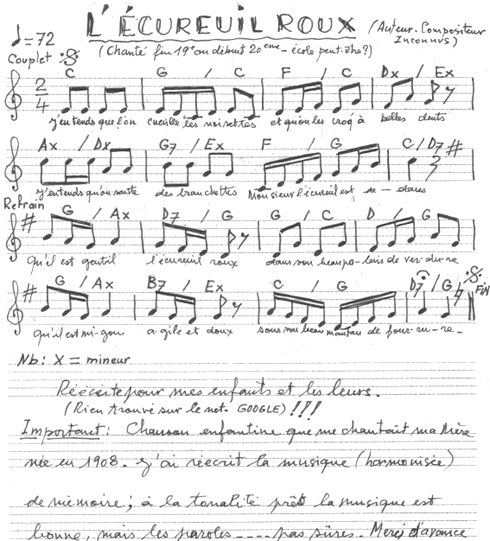 L'ÉCUREUIL ROUX (Auteur-Compositeur
♩=72 (Chanté fin 19e ou début 20ème - école peut-être?) Inconnus)
Couplet
C G / C F / C Dx / Ex
2/4
J'entends que l'on cueille les noisettes et qu'on les croq' à belles dents
Ax / Dx G7 / Ex F / G C / D7 #
J'entends qu'on saute des branchettes Monsieur l'écureuil est
Refrain
G / Ax D7 / G G / C D / G
Qu'il est gentil l'écureuil roux dans son beau pa-lais de ver-du-re
G / Ax B7 / Ex C / G D7 / G FIN
qu'il est mi-gnon a-gile et doux sous son beau manteau de four-ru-re-
Nb: X = mineur
Réécrite pour mes enfants et les leurs.
(Rien trouvé sur le net. GOOGLE) !!!
Important: Chanson enfantine que me chantait ma Mère
née en 1908. J'ai réécrit la musique (harmonisée)
de mémoire; à la tonalité près la musique est
bonne, mais les paroles .... pas sûres. Merci d'avance